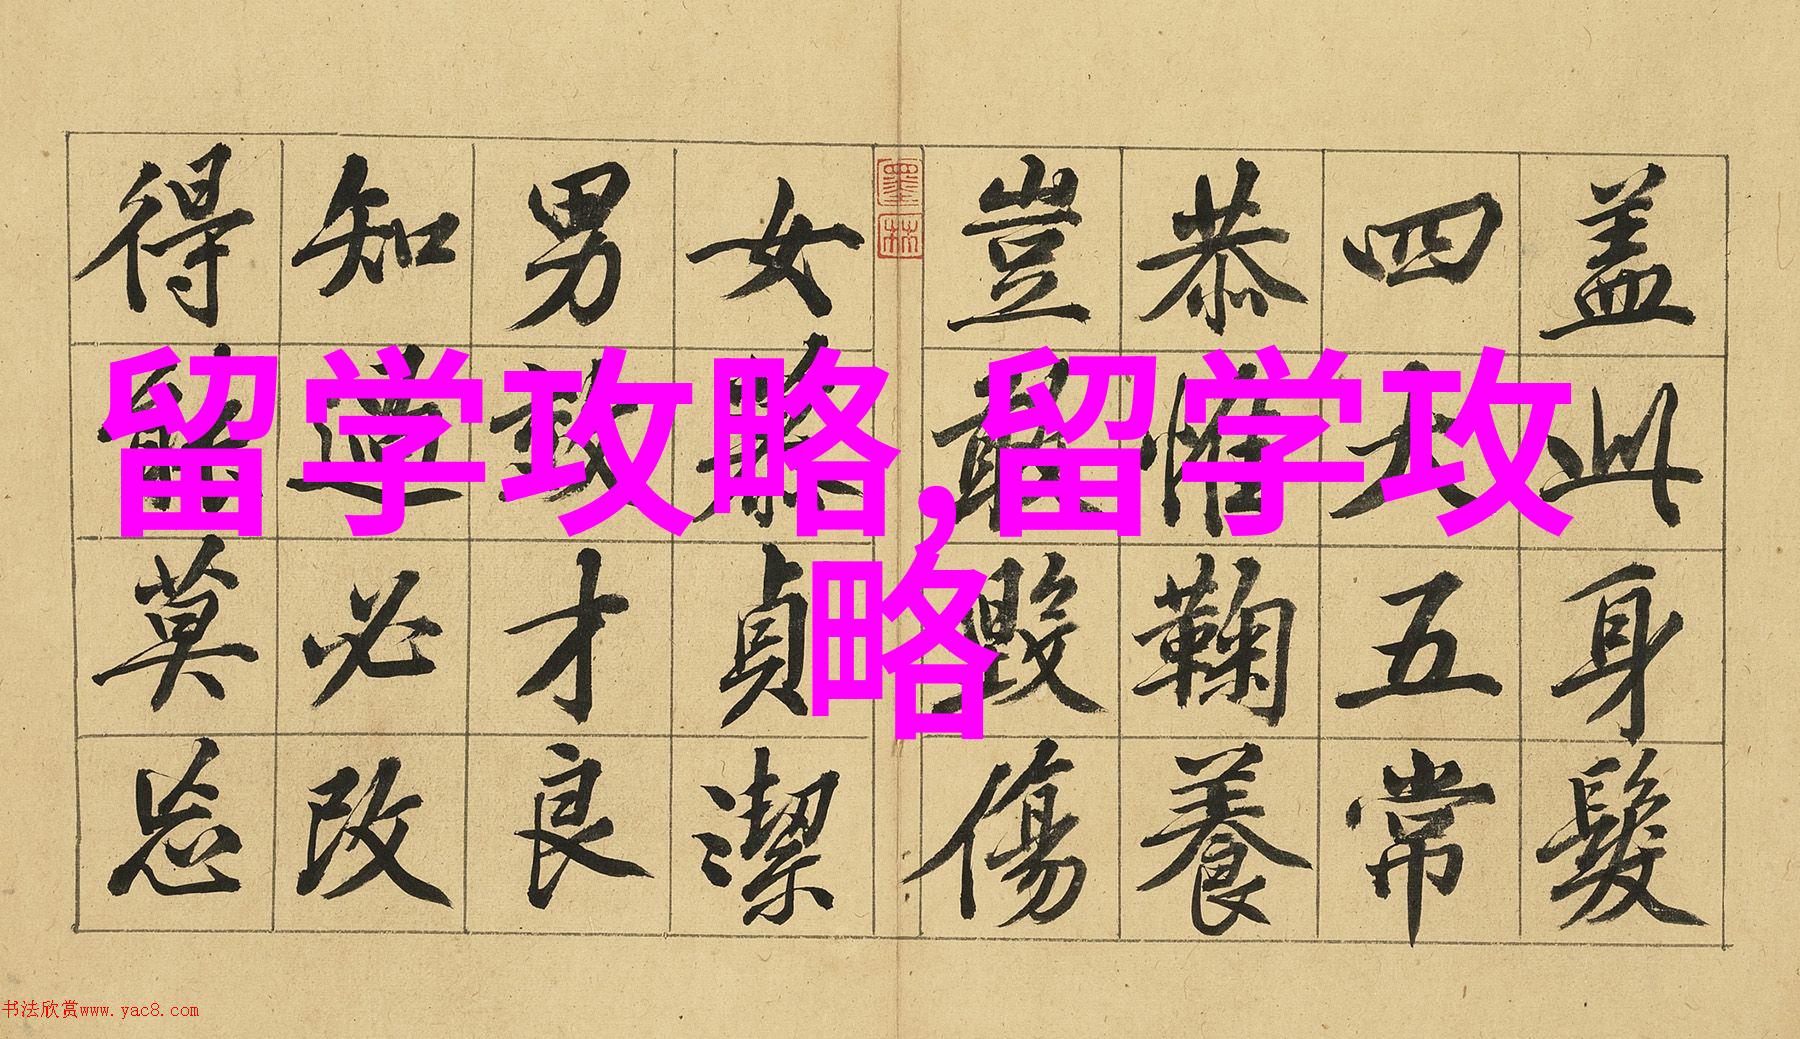 盖此身髮
四大五常
恭惟鞠養
豈敢毀傷
墨林
女慕貞潔
男效才良
知過必改
得能莫忘
留学攻略,留学攻
略
书法欣赏www.yac8.com